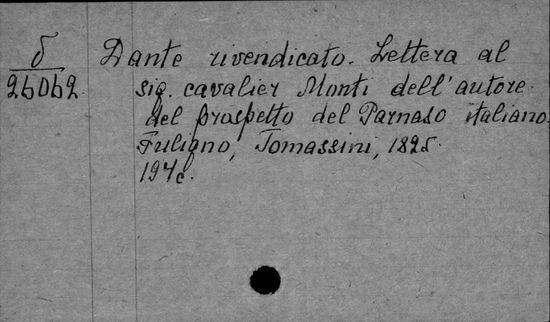 δ
26062
Dante rivendicato. Lettera al
sig. cavalier Monti dell'autore
del prospetto del Parnaso italiano.
Fuligno, Tomassini, 1825.
194 c.